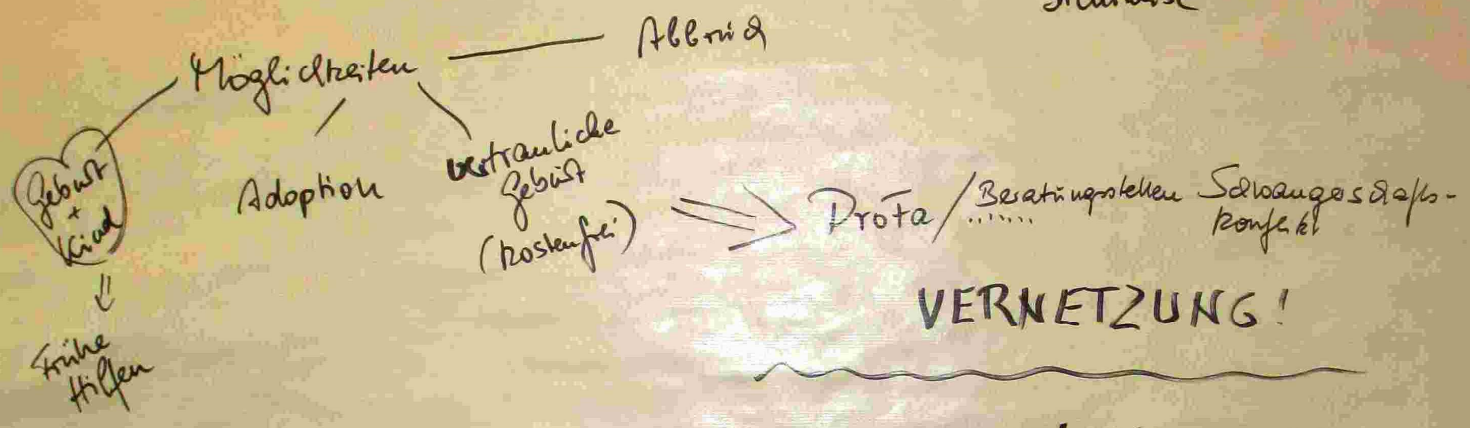 Möglichkeiten
Abbruch
Geburt
+
Kind
Adoption
vertrauliche
Geburt
(kostenfrei)
ProFa / Beratungsstellen Schwangerschafts-
konflikt
VERNETZUNG!
Frühe
Hilfen